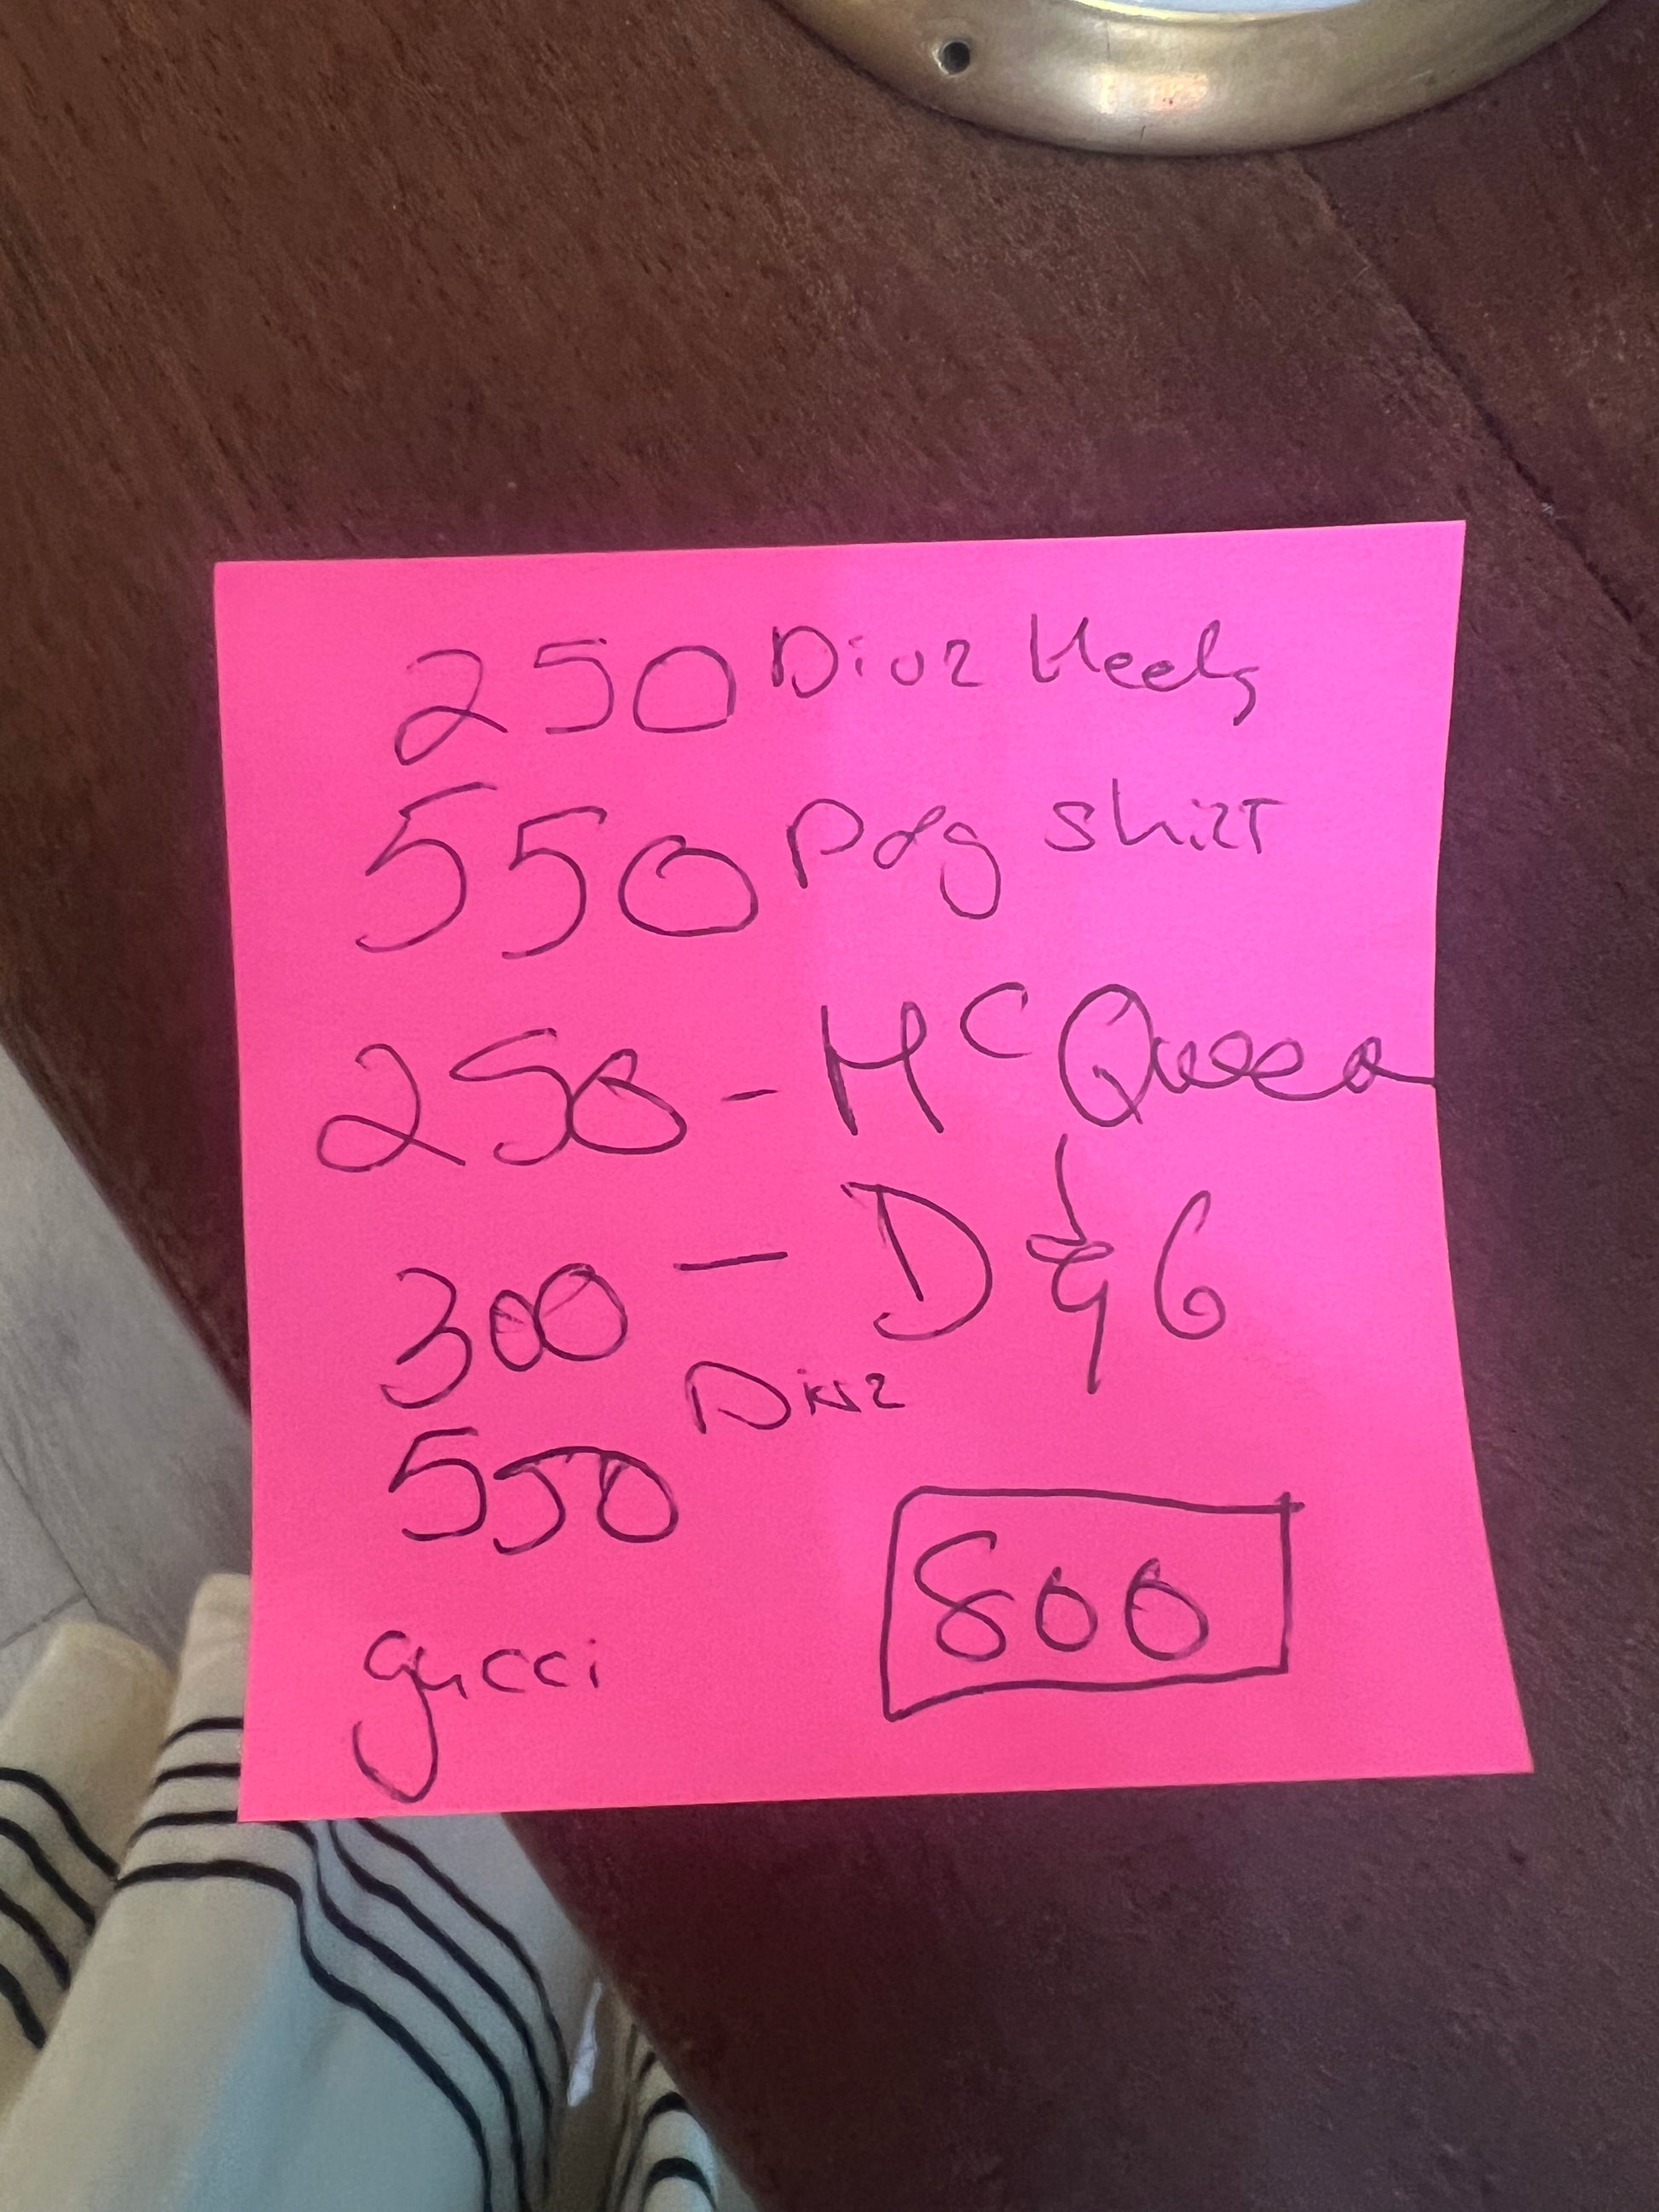 250 Dior Heels
550 Dog shirt
250 - McQueen
300 - D & G
Dior
550
800
gucci